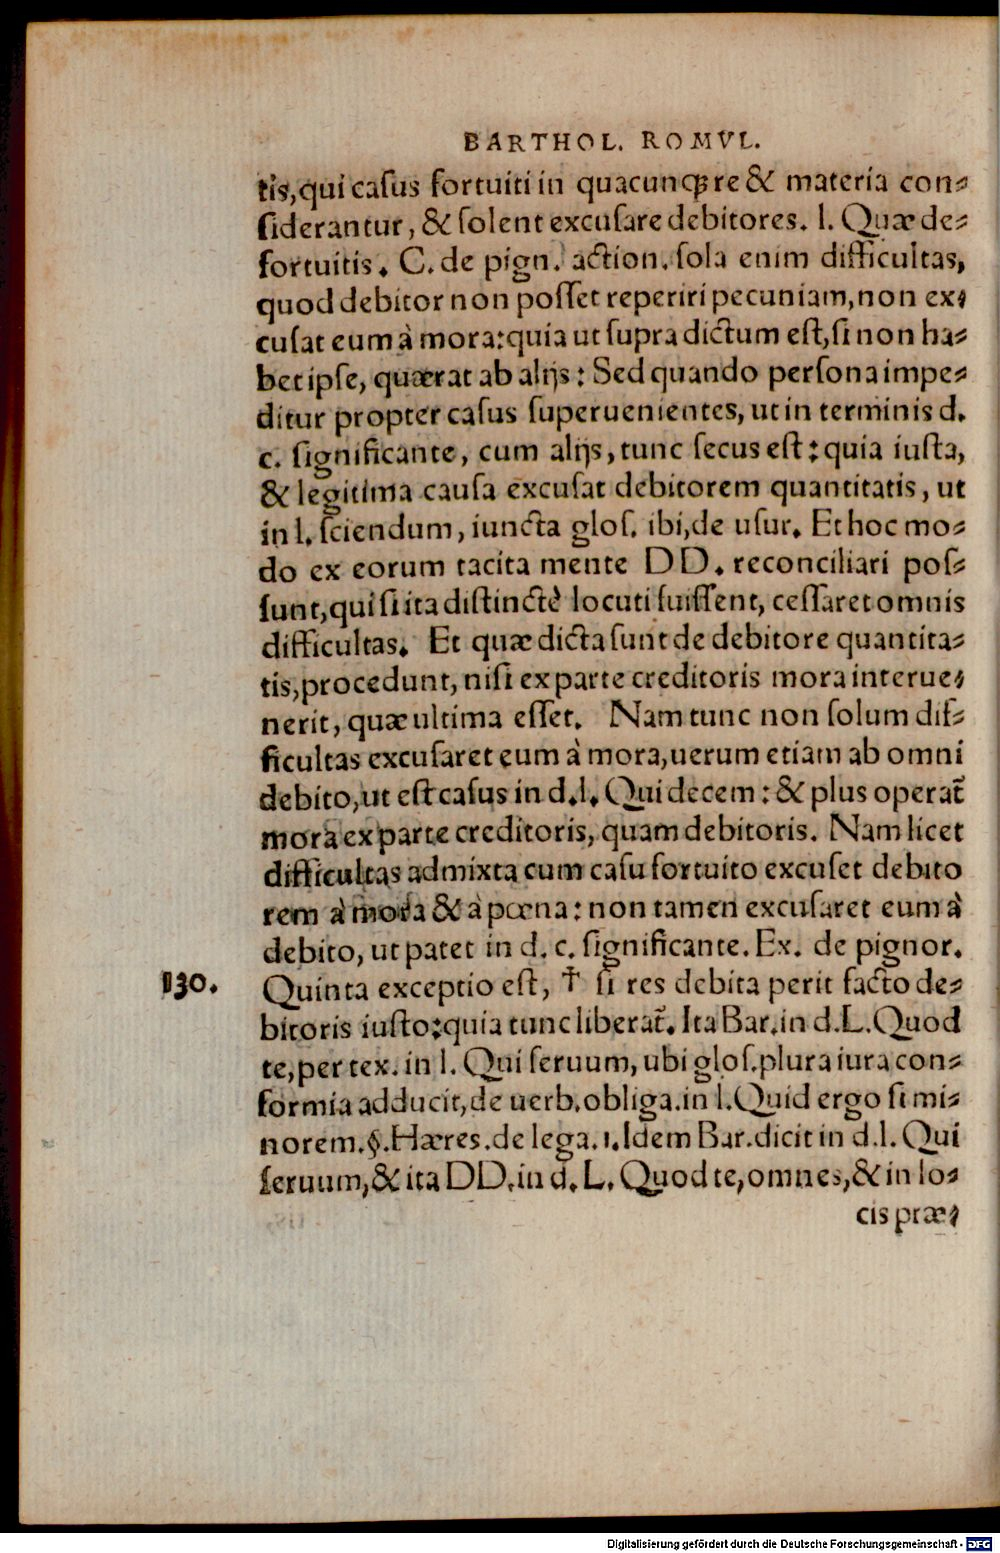 BARTHOL. ROMVL.
tis, qui casus fortuiti in quacunqꝫ re & materia con-
siderantur, & solent excusare debitores. l. Quæ de-
fortuitis. C. de pign. action. sola enim difficultas,
quod debitor non posset reperiri pecuniam, non ex-
cusat eum à mora: quia ut supra dictum est, si non ha-
bet ipse, quærat ab alijs: Sed quando persona impe-
ditur propter casus superuenientes, ut in terminis d.
c. significante, cum alijs, tunc secus est: quia iusta,
& legitima causa excusat debitorem quantitatis, ut
in l. sciendum, iuncta glos. ibi, de usur. Et hoc mo-
do ex eorum tacita mente DD. reconciliari pos-
sunt, qui si ita distinctè locuti fuissent, cessaret omnis
difficultas. Et quæ dicta sunt de debitore quantita-
tis, procedunt, nisi ex parte creditoris mora interue-
nerit, quæ ultima esset. Nam tunc non solum dif-
ficultas excusaret eum à mora, uerum etiam ab omni
debito, ut est casus in d. l. Qui decem: & plus operat̃
mora ex parte creditoris, quam debitoris. Nam licet
difficultas admixta cum casu fortuito excuset debito
rem à mora & à pœna: non tamen excusaret eum à
debito, ut patet in d. c. significante. Ex. de pignor.
130. Quinta exceptio est, † si res debita perit facto de-
bitoris iusto: quia tunc liberat̃. Ita Bar. in d. L. Quod
te, per tex. in l. Qui seruum, ubi glos. plura iura con-
formia adducit, de uerb. obliga. in l. Quid ergo si mi-
norem. §. Hæres. de lega. 1. Idem Bar. dicit in d. l. Qui
seruum, & ita DD. in d. L. Quod te, omnes, & in lo-
cis præ-
Digitalisierung gefördert durch die Deutsche Forschungsgemeinschaft - DFG